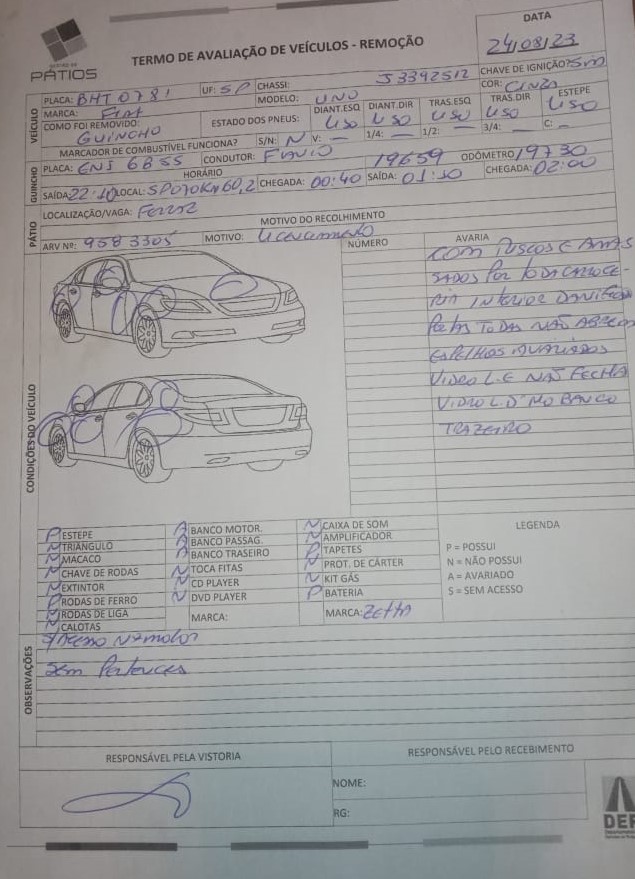 PÁTIOS
TERMO DE AVALIAÇÃO DE VEÍCULOS - REMOÇÃO
DATA
24/08/23
VEÍCULO
PLACA: BHT 0781 UF: SP CHASSI: J3392512 CHAVE DE IGNIÇÃO? Sim
MARCA: Fiat MODELO: UNO COR: CINZA
COMO FOI REMOVIDO: GUINCHO ESTADO DOS PNEUS: DIANT.ESQ USO DIANT.DIR USO TRAS.ESQ USO TRAS.DIR USO ESTEPE USO
MARCADOR DE COMBUSTÍVEL FUNCIONA? S/N: N V: — 1/4: — 1/2: — 3/4: — C: —
GUINCHO
PLACA: ENJ 6B55 CONDUTOR: FLAVIO 19659 ODÔMETRO 19730
HORÁRIO
SAÍDA 22:10 LOCAL: SP070 Km 60,2 CHEGADA: 00:40 SAÍDA: 01:10 CHEGADA: 02:00
PÁTIO
LOCALIZAÇÃO/VAGA: Ferraz
MOTIVO DO RECOLHIMENTO
ARV Nº: 9583305 MOTIVO: Licenciamento
CONDIÇÕES DO VEÍCULO
NÚMERO AVARIA
COM RISCOS E AMAS
SADOS POR TODA CARROCE-
RIA INTERIOR DANIFICADO
Portas TODAS NÃO ABREM
ESPELHOS AVARIADOS
VIDRO L.E NÃO FECHA
VIDRO L.D NO BANCO
TRAZEIRO
P ESTEPE A BANCO MOTOR. N CAIXA DE SOM
N TRIÂNGULO A BANCO PASSAG. N AMPLIFICADOR
N MACACO A BANCO TRASEIRO P TAPETES
N CHAVE DE RODAS N TOCA FITAS N PROT. DE CÁRTER
N EXTINTOR N CD PLAYER N KIT GÁS
P RODAS DE FERRO N DVD PLAYER P BATERIA
N RODAS DE LIGA MARCA: MARCA: ZETTA
N CALOTAS
LEGENDA
P = POSSUI
N = NÃO POSSUI
A = AVARIADO
S = SEM ACESSO
OBSERVAÇÕES
S/ Acesso Nº motor
Sem Pertences
RESPONSÁVEL PELA VISTORIA RESPONSÁVEL PELO RECEBIMENTO
NOME:
RG: